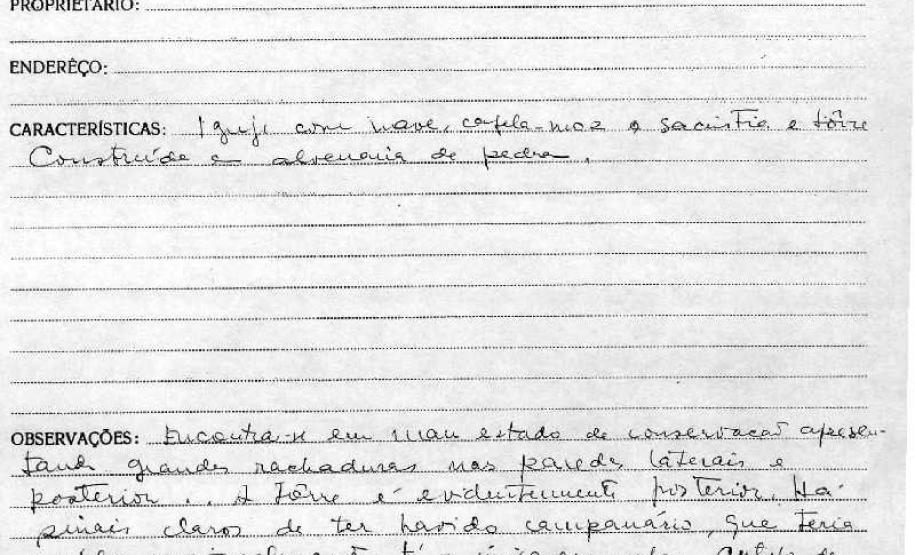 PROPRIETÁRIO:
ENDERÊÇO:
CARACTERÍSTICAS: Igreja com nave, capela-mor e sacristia e tôrre
Construída e alvenaria de pedra.
OBSERVAÇÕES: Encontra-se em mau estado de conservação apresen-
tando grandes rachaduras nas paredes laterais e
posterior. A Tôrre é evidentemente posterior. Há
sinais claros de ter havido campanário, que teria